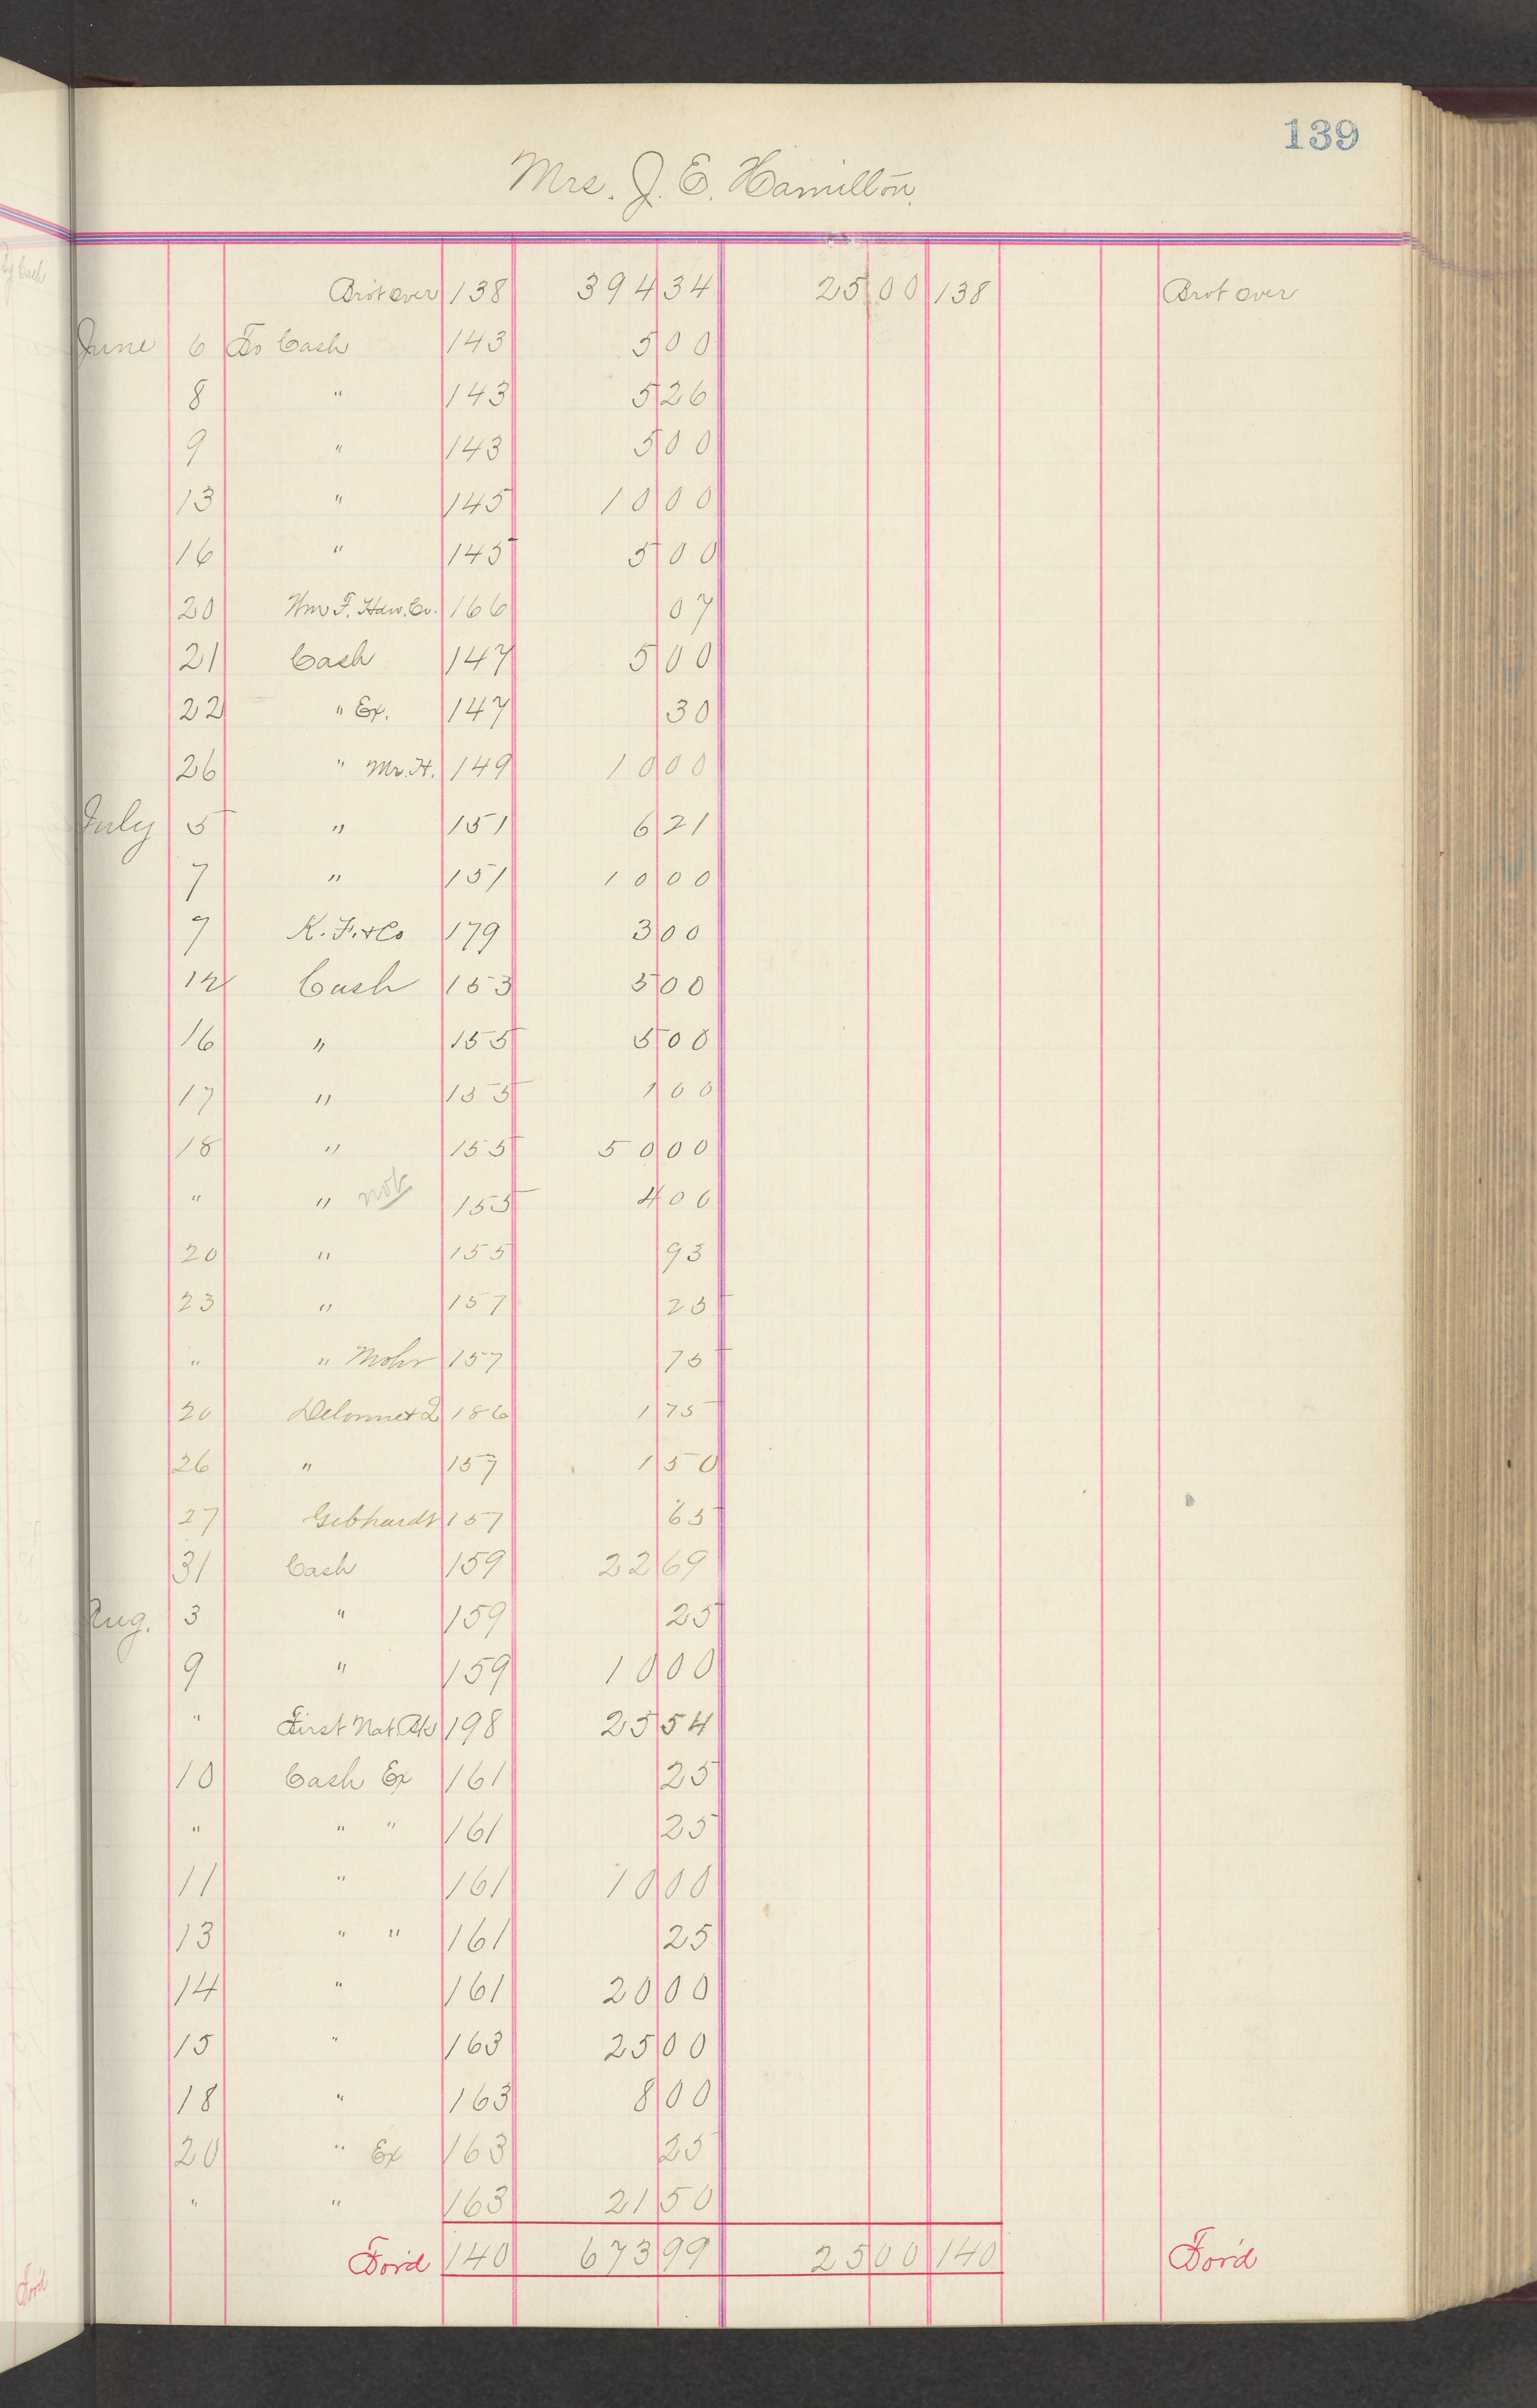 139
Mrs. J. E. Hamilton.
Bro't over 138 394 34 25 00 138 Brot over
June 6 To Cash 143 5 00
8 " 143 5 26
9 " 143 5 00
13 " 145 10 00
16 " 145 5 00
20 Wm F. Haw. Co. 166 07
21 Cash 147 5 00
22 " Ex. 147 30
26 " Mr. H. 149 10 00
July 5 " 151 6 21
7 " 151 10 00
7 K. F. & Co 179 3 00
12 Cash 153 5 00
16 " 155 5 00
17 " 155 1 00
18 " 155 50 00
" " not 155 4 00
20 " 155 93
23 " 157 25
" " Mohr 157 75
26 186 1 75
26 " 157 1 50
27 Gebhardt 157 65
31 Cash 159 22 69
Aug. 3 " 159 25
9 " 159 10 00
" First Nat. Bk 198 25 54
10 Cash Ex 161 25
" " " 161 25
11 " 161 10 00
13 " " 161 25
14 " 161 20 00
15 " 163 25 00
18 " 163 8 00
20 " Ex 163 25
" " 163 21 50
For'd 140 673 99 25 00 140 For'd
By Cash
For'd